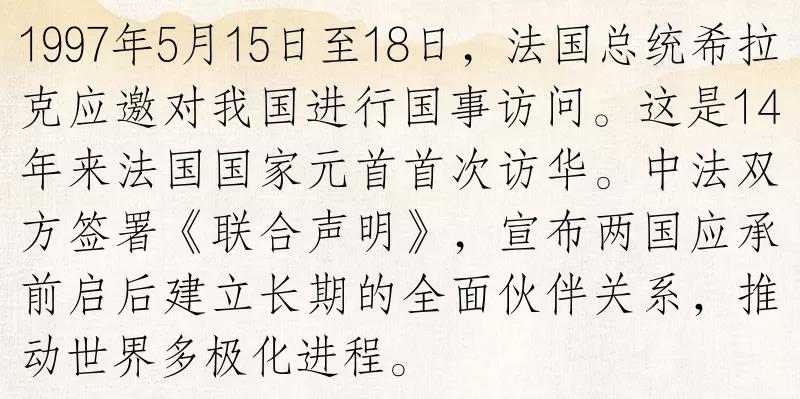 1997年5月15日至18日，法国总统希拉
克应邀对我国进行国事访问。这是14
年来法国国家元首首次访华。中法双
方签署《联合声明》，宣布两国应承
前启后建立长期的全面伙伴关系，推
动世界多极化进程。